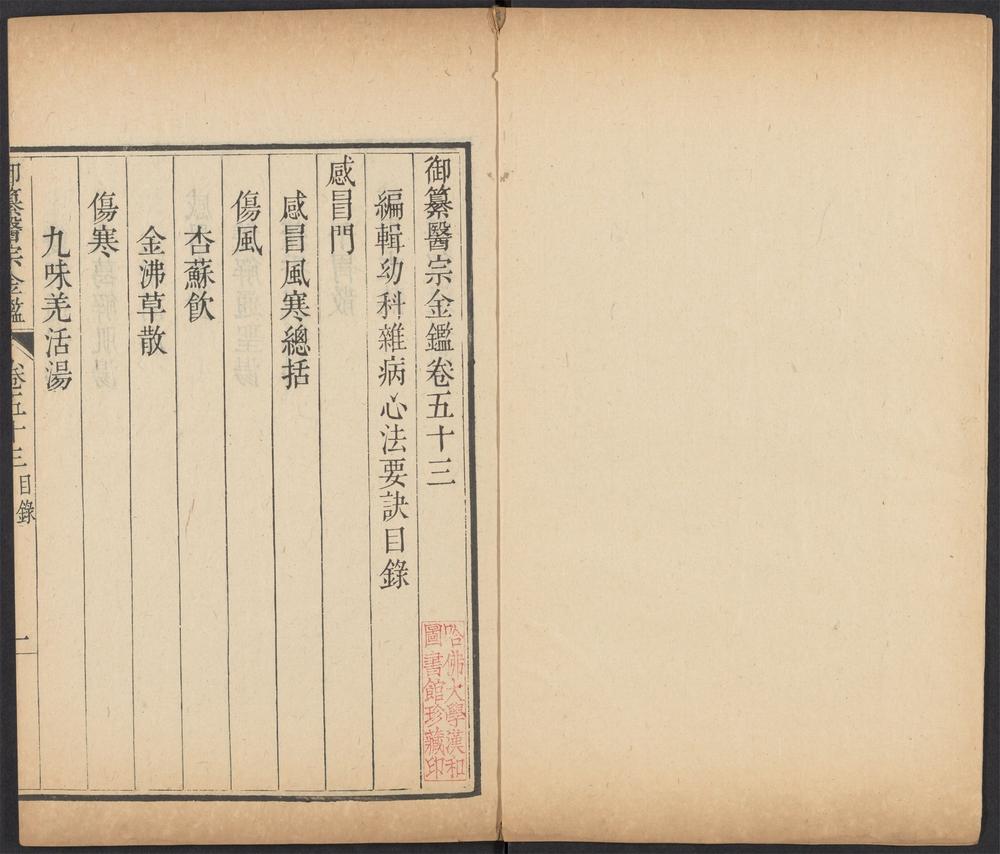 御纂醫宗金鑑卷五十三
編輯幼科雜病心法要訣目錄
感冒門
感冒風寒總括
傷風
杏蘇飲
金沸草散
傷寒
九味羌活湯
御纂醫宗金鑑 卷五十三目錄 一
哈佛大學漢和
圖書館珍藏印